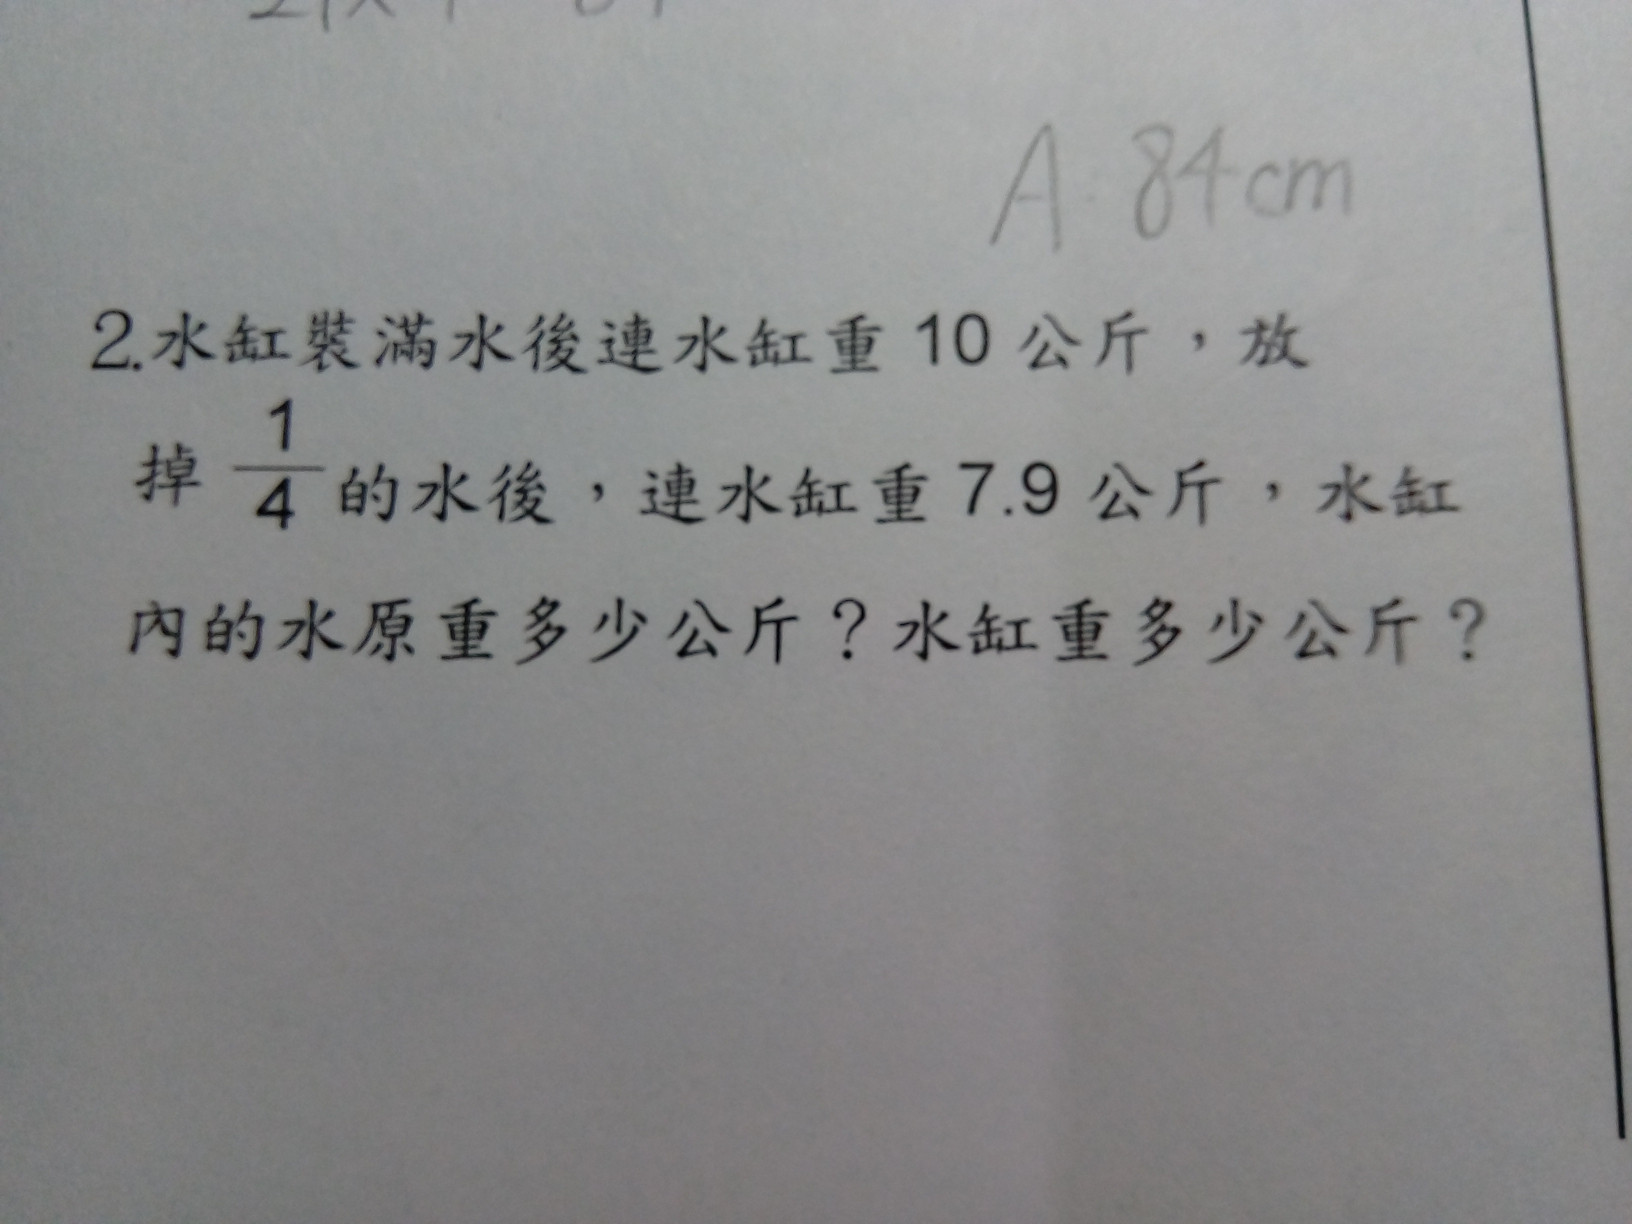 A: 84cm
2.水缸裝滿水後連水缸重 10 公斤，放
掉 1/4 的水後，連水缸重 7.9 公斤，水缸
內的水原重多少公斤？水缸重多少公斤？